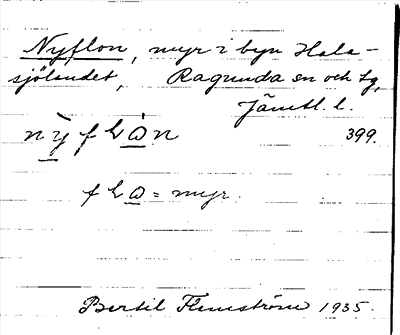 Nyflon, myr i byn Håla-
sjölandet, Ragunda sn och tg,
Jämtl. l.
399.
fLo = myr.
Bertil Flemström 1935.